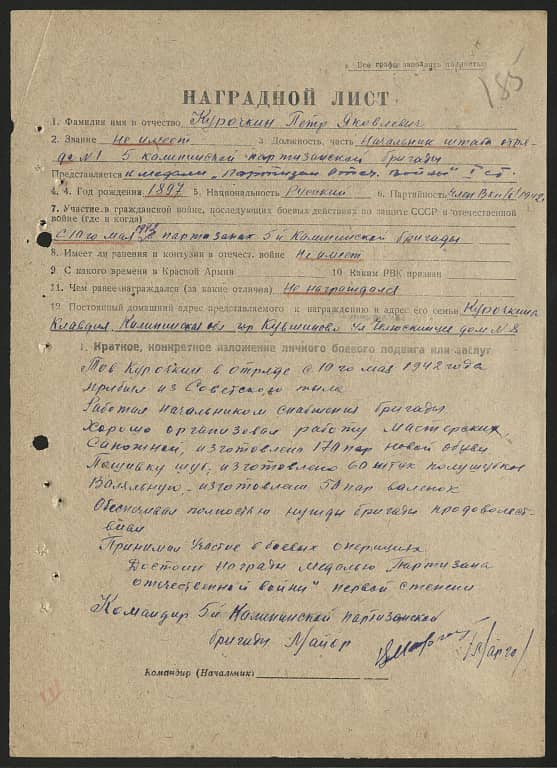 Все графы заполнять полностью
185
НАГРАДНОЙ ЛИСТ
1. Фамилия имя и отчество Курочкин Петр Яковлевич
2. Звание Не имеет 3 Должность, часть Начальник штаба отря-
да №1 5 калининской партизанской бригады
Представляется к медали „Партизан Отеч. войны" I ст.
4. 4. Год рождения 1897 5. Национальность Русский 6. Партийность Член ВКП(б) 1942
7. Участие в гражданской войне, последующих боевых действиях по защите СССР и отечественной
войне (где и когда)
С 10го мая 1942 в партизанах 5й Калининской бригады
8. Имеет ли ранения и контузии в отечест. войне Не имеет
9 С какого времени в Красной Армии 10 Каким РВК призван
11. Чем ранее награждался (за какие отличия) Не награждался
12. Постоянный домашний адрес представляемого к награждению и адрес его семьи Курочкина
Клавдия, Калининская обл гор Кувшиново ул Челюскинцев дом №8
1. Краткое, конкретное изложение личного боевого подвига или заслуг
Тов Курочкин в отряде с 10го мая 1942 года
прибыл из Советского тыла
Работая начальником снабжения бригады
хорошо организовал работу мастерских,
Сапожной, изготовлено 170 пар новой обуви
Пошивку шуб, изготовлено 60 штук полушубков
Валяльную - изготовлено 50 пар валенок
Обеспечивал полностью нужды бригады продовольст-
вием
Принимал участие в боевых операциях
Достоин награды медалью „Партизана
отечественной войны" первой степени
Командир 5й Калининской партизанской
бригады Майор /Марго/
Командир (Начальник)